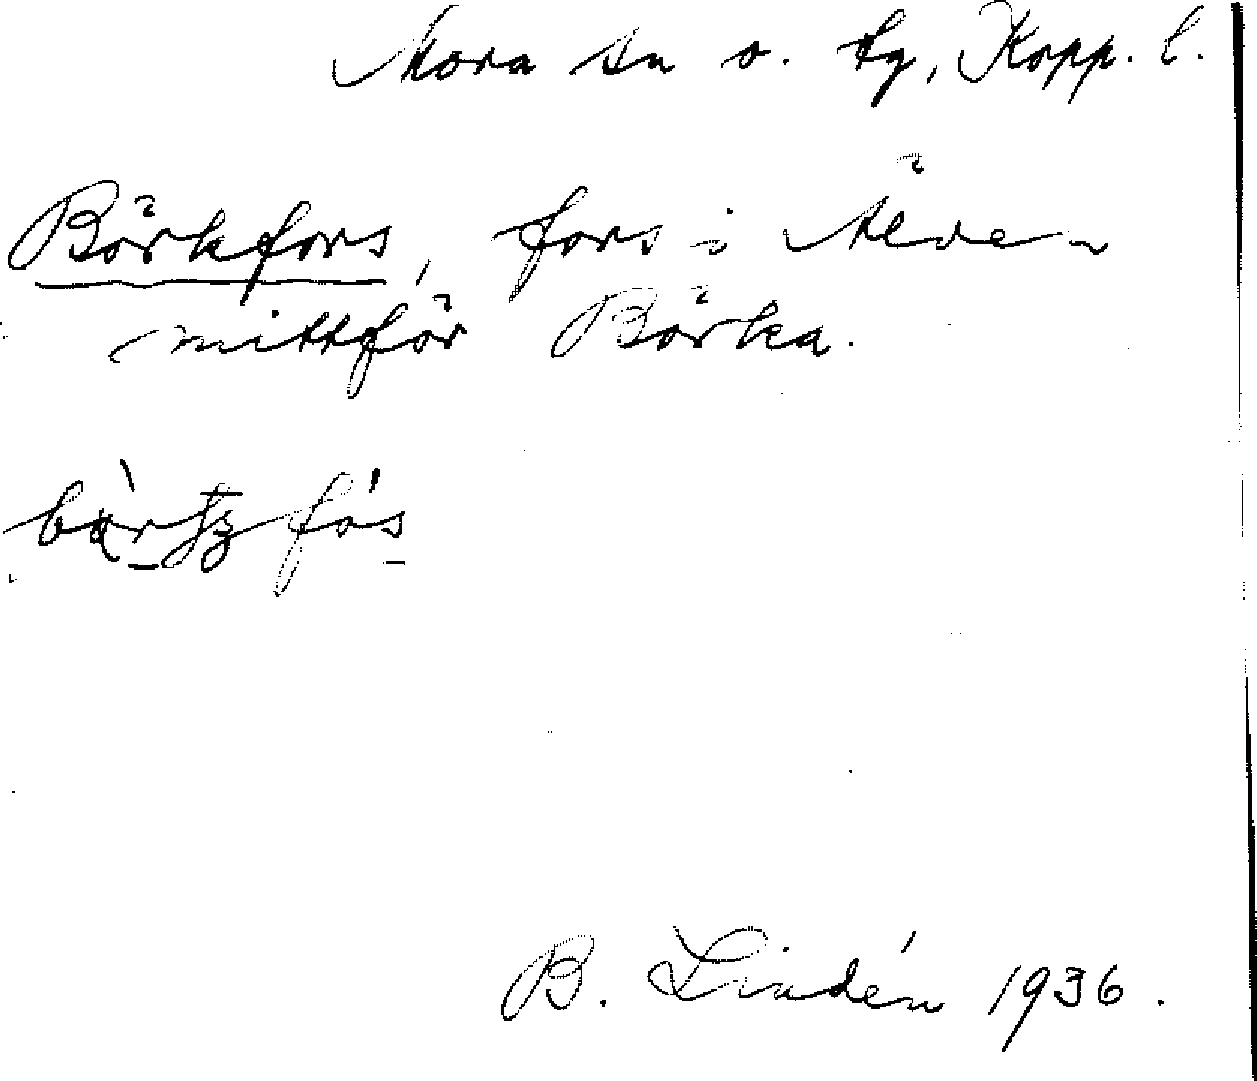 Mora sn o. tg, Kopp. l.
Börkfors, fors i Älven
mittför Börka.
B. Lindén 1936.